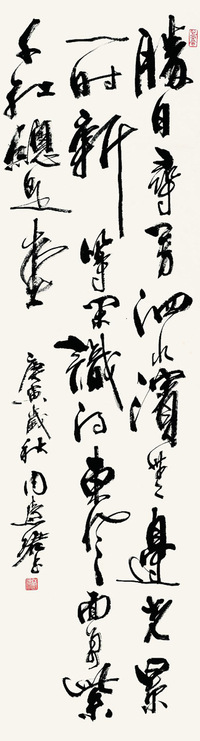 勝日尋芳泗水濱無邊光景
一时新等閒識得東風面萬紫
千紅總是春
庚寅歲秋周慧珺书